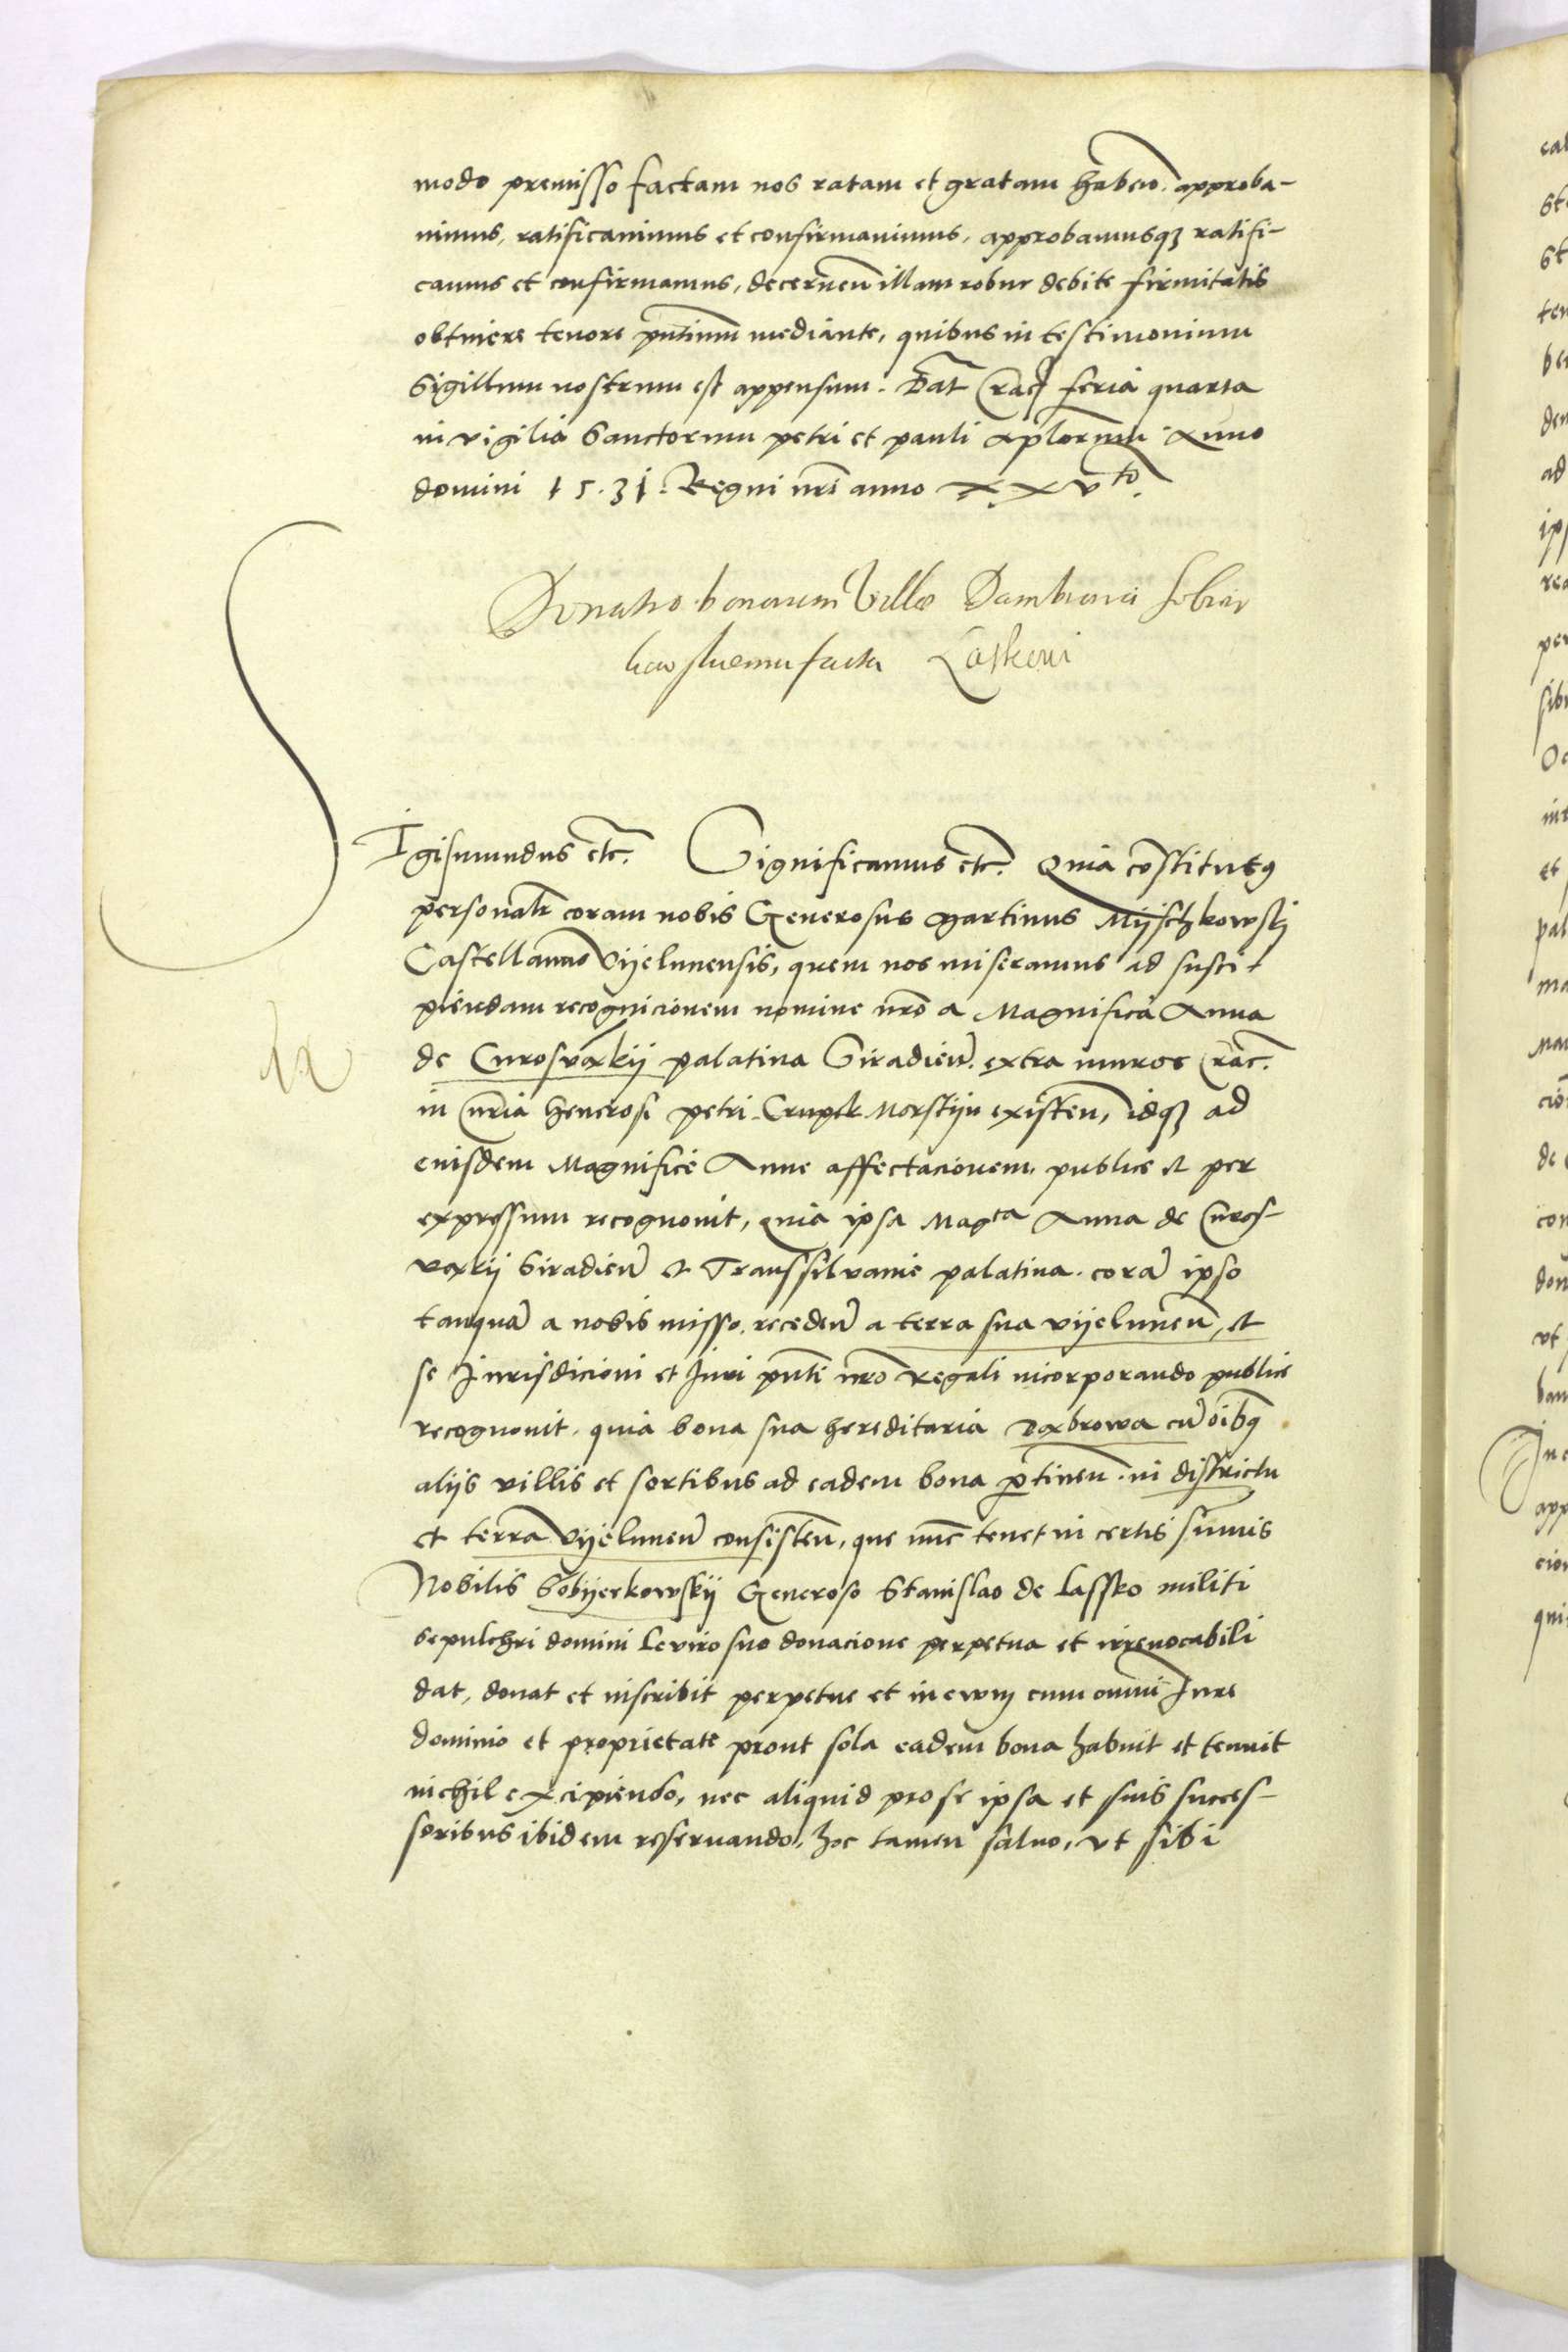 modo premisso factam nos ratam et gratam haben. approba-
uimus, ratificauimus et confirmauimus, approbamusq3 ratifi-
camus et confirmamus, decernen illam robur debite firmitatis
obtinere tenore pntium mediante, quibus in testimonium
Sigillum nostrum est appensum. Dat Crac feria quarta
in vigilia Sanctorum petri et pauli aplorum Anno
domini 1531. Regni nri anno xxvto.
Donatio bonorum Villae Dambrowa
facta Laskoni
SIgismundus etc. Significamus etc. Quia constitutus
personalr coram nobis Generosus Martinus Mijschkowskj
Castellanus Vijelunensis, quem nos miseramus ad susci-
piendam recognicionem nomine nro a Magnifica Anna
de Curoswąkij palatina Siradien. extra muros Crac.
in curia Generosi petri Crupek Morstijn existen, idq3 ad
eiusdem Magnifice Anne affectacionem, publice et per
expressum recognouit, quia ipsa Magca Anna de Curos-
wąkij Siradien et Transsilvanie palatina. cora ipso
tanqua a nobis misso, receden a terra sua vijelunen, et
se Jurisdicioni et Juri pnti nro Regali incorporando publice
recognouit, quia bona sua hereditaria Dąbrowa cu oibus
alijs villis et sortibus ad eadem bona ptinen. in districtu
et terra Vijelunen consisten, que nunc tenet in certis sumis
Nobilis Sobijerkowskij Generoso Stanislao de Lassko militi
sepulchri domini Leviro suo donacione perpetua et irreuocabili
dat, donat et inscribit perpetue et in ewm cum omni Jure
dominio et proprietate prout sola eadem bona habuit et tenuit
nichil excipiendo, nec aliquid pro se ipsa et suis succes-
soribus ibidem reseruando, hoc tamen saluo, vt sibi